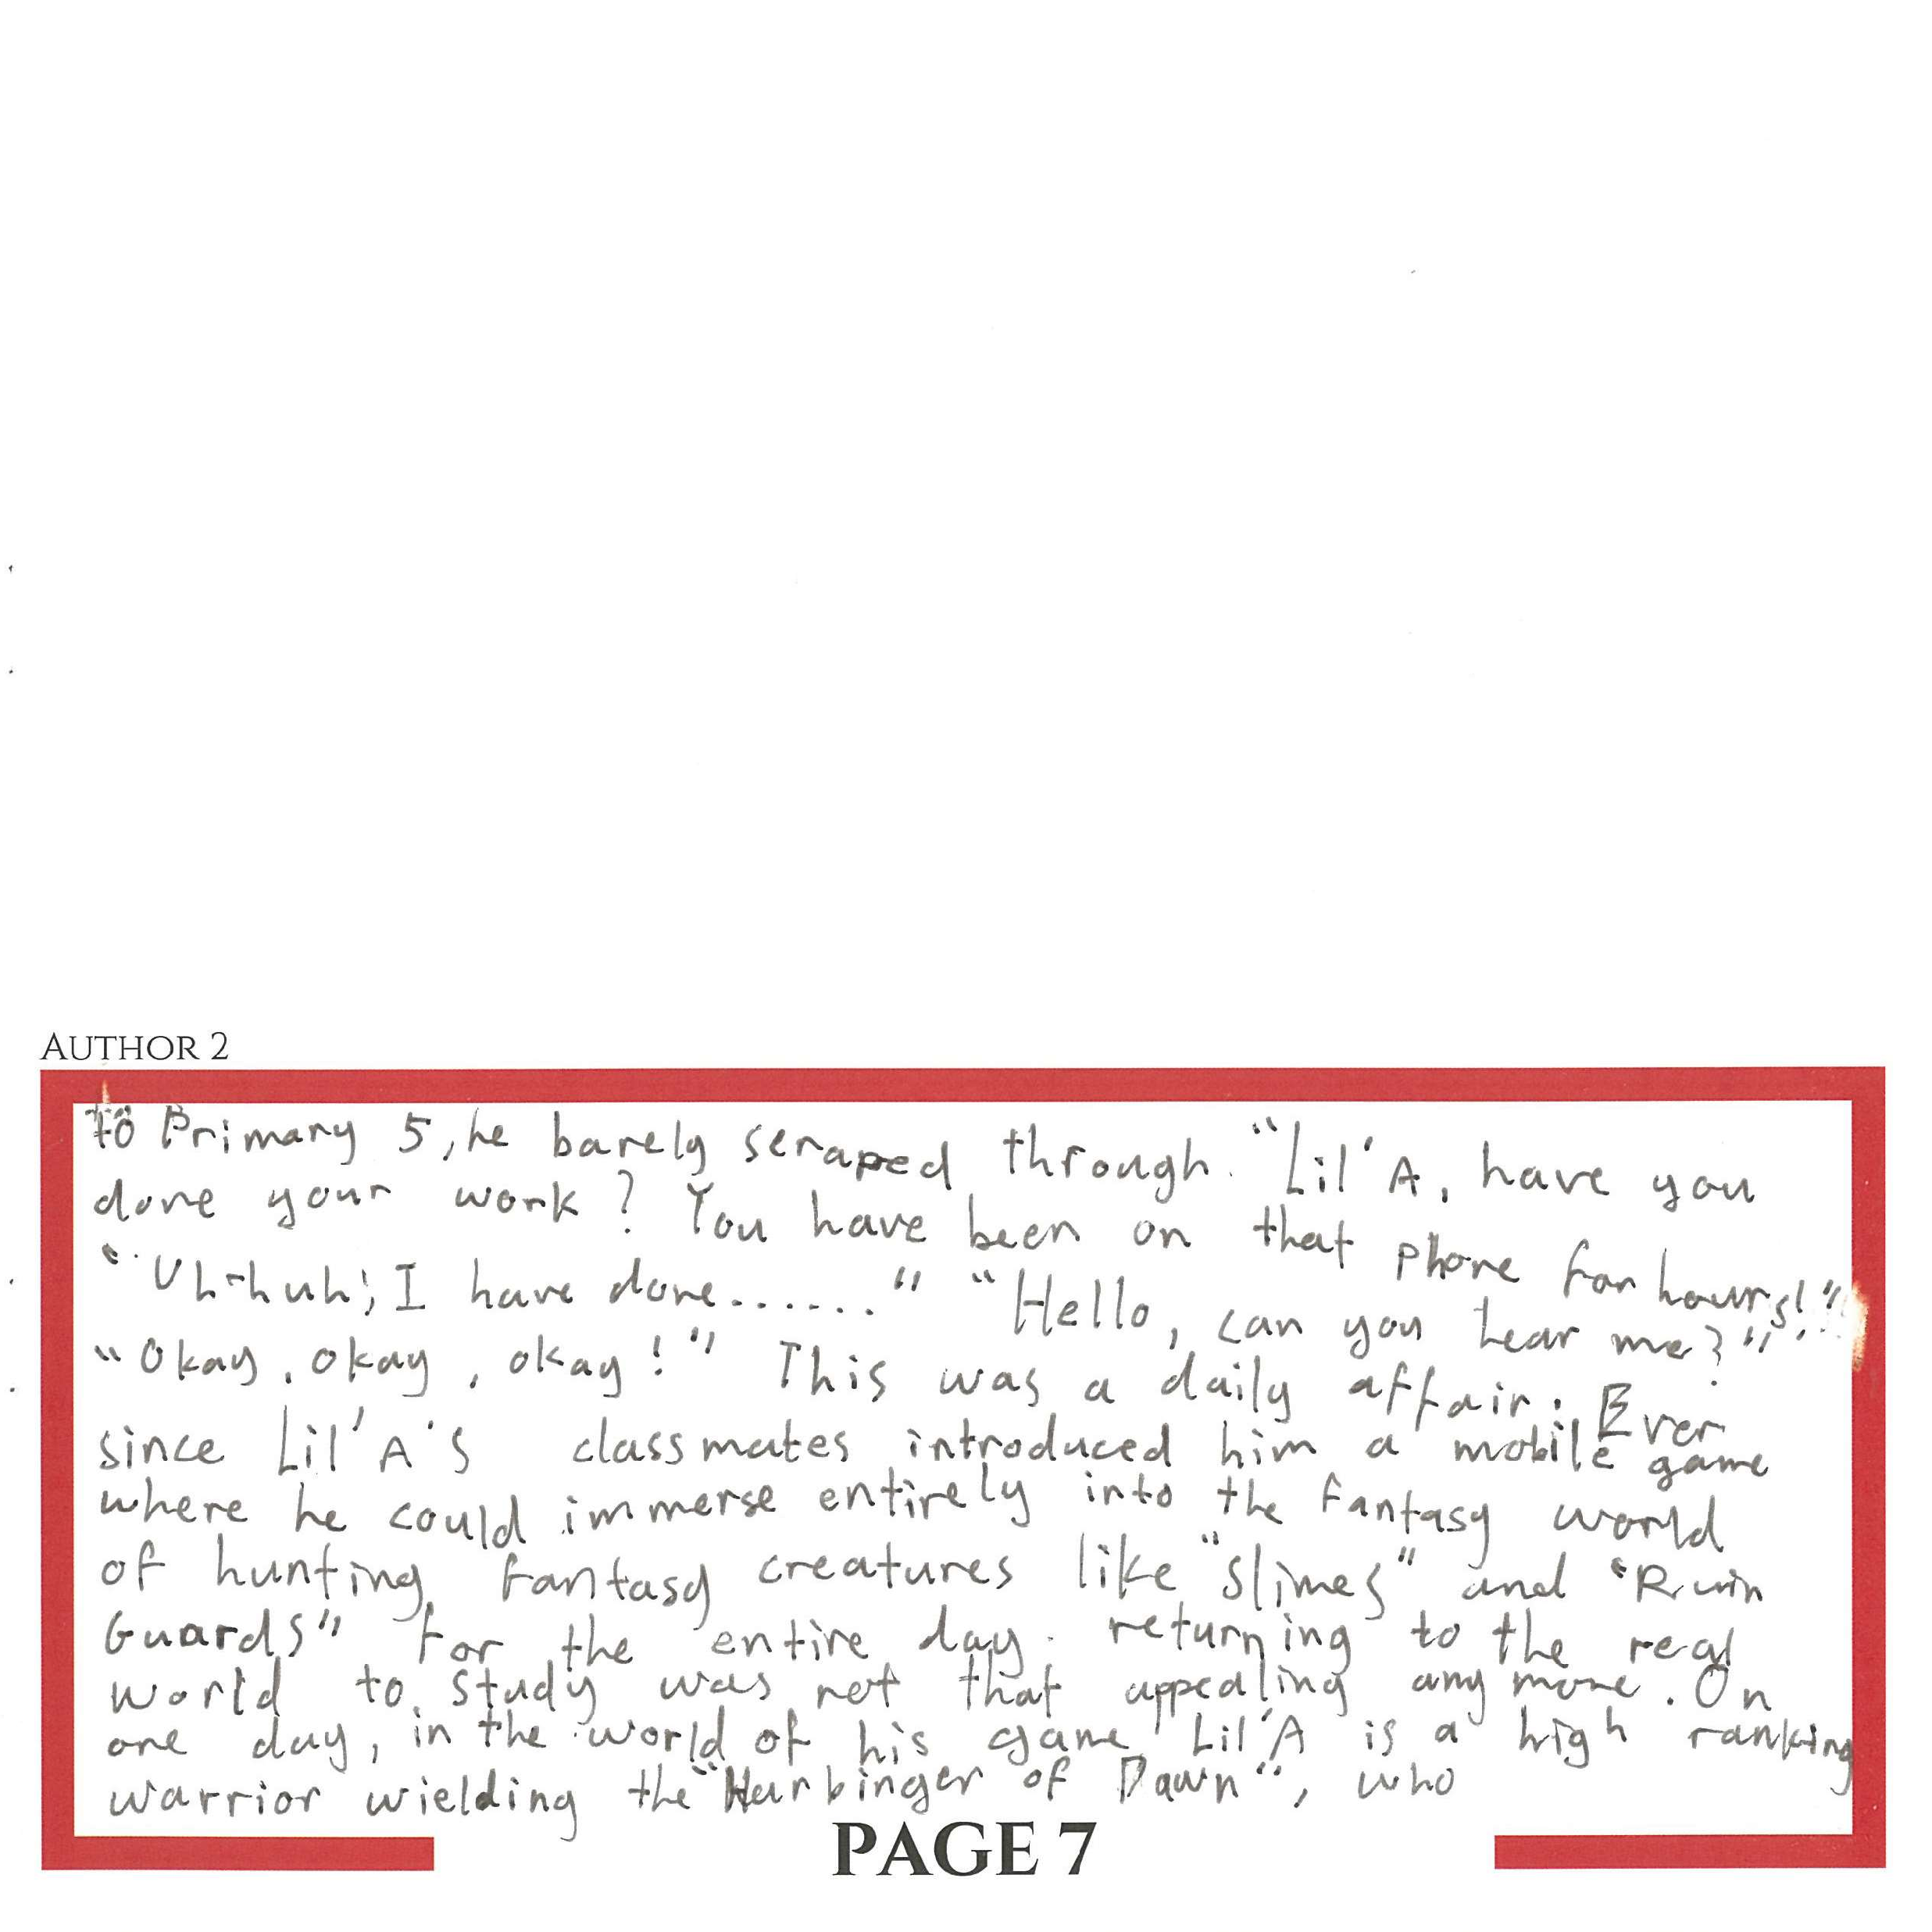 AUTHOR 2
to Primary 5, he barely scraped through. "Lil'A, have you
done your work? You have been on that phone for hours!"
"Uh-huh, I have done......" "Hello, can you hear me?"
"Okay, okay, okay!" This was a daily affair. Ever
since Lil'A's classmates introduced him a mobile game
where he could immerse entirely into the fantasy world
of hunting fantasy creatures like "Slimes" and "Ruin
Guards" for the entire day. returning to the real
world to study was not that appealing anymore. On
one day, in the world of his game, Lil'A is a high ranking
warrior wielding the "Harbinger of Dawn", who
PAGE 7